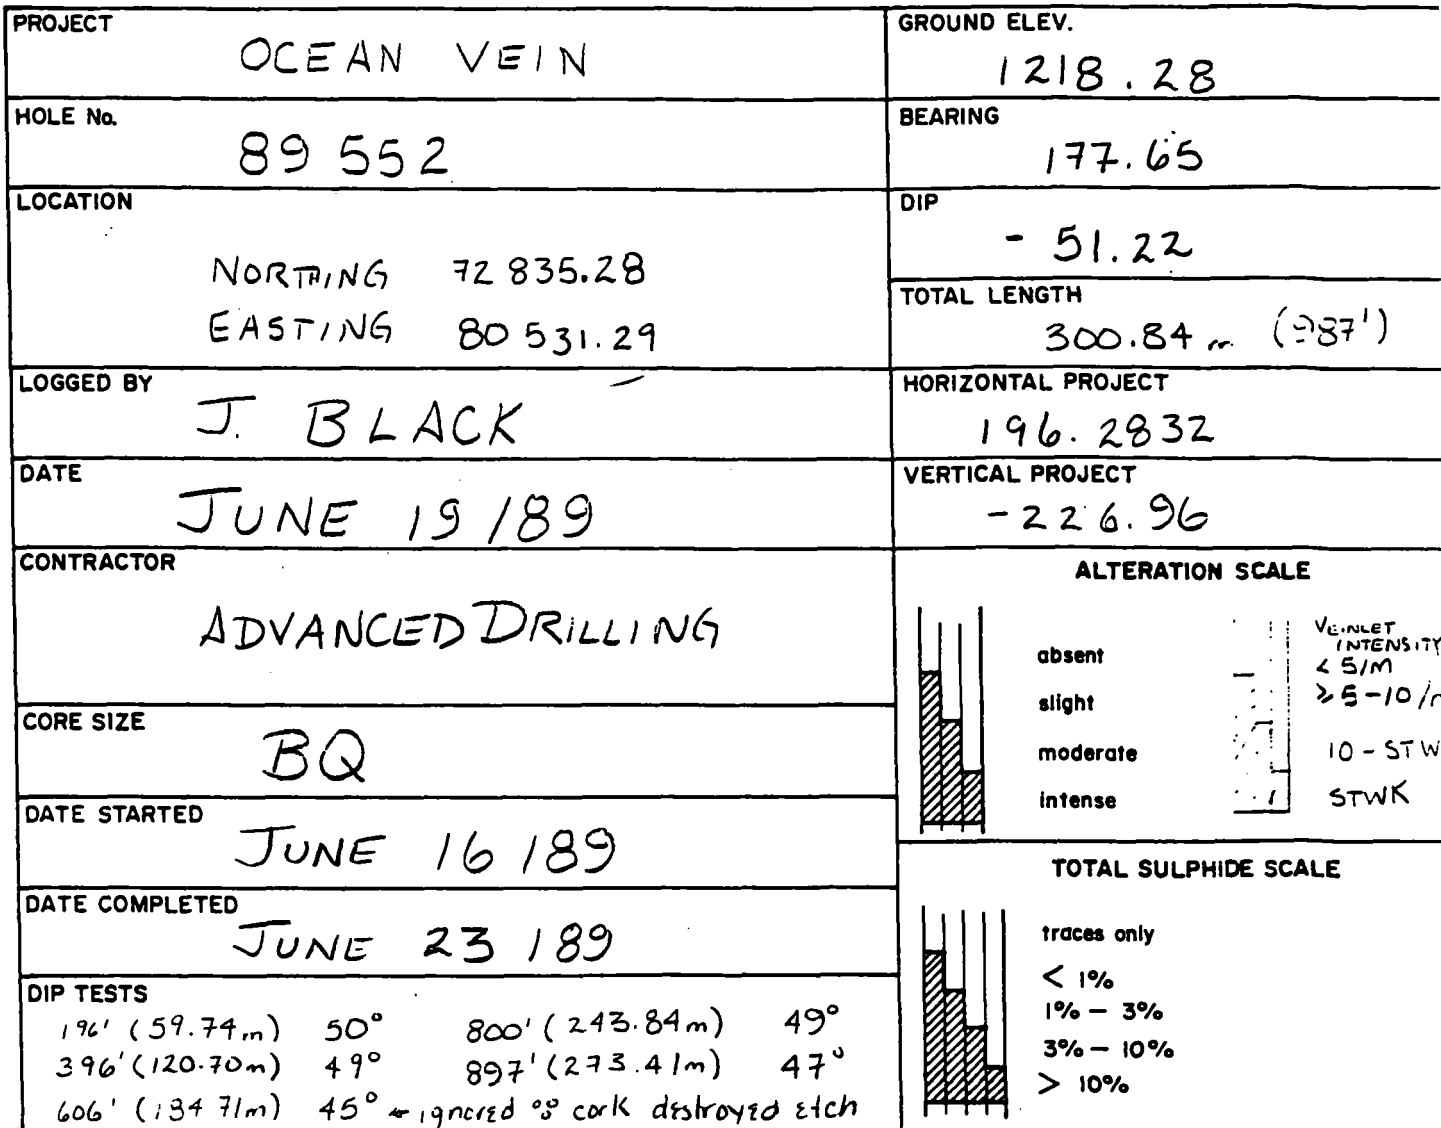 PROJECT
OCEAN VEIN
HOLE No.
89 552
LOCATION
NORTHING 72 835.28
EASTING 80 531.29
LOGGED BY
J. BLACK
DATE
JUNE 19/89
CONTRACTOR
ADVANCED DRILLING
CORE SIZE
BQ
DATE STARTED
JUNE 16/89
DATE COMPLETED
JUNE 23/89
DIP TESTS
196' (59.74m) 50° 800' (243.84m) 49°
396' (120.70m) 49° 897' (273.41m) 47°
606' (184.71m) 45° ← ignored ∵ cork destroyed etch
GROUND ELEV.
1218.28
BEARING
177.65
DIP
- 51.22
TOTAL LENGTH
300.84 m (987')
HORIZONTAL PROJECT
196.2832
VERTICAL PROJECT
-226.96
ALTERATION SCALE
absent
slight
moderate
intense
VEINLET
INTENSITY
< 5/M
≥ 5-10/
10 - STW
STWK
TOTAL SULPHIDE SCALE
traces only
< 1%
1% – 3%
3% – 10%
> 10%